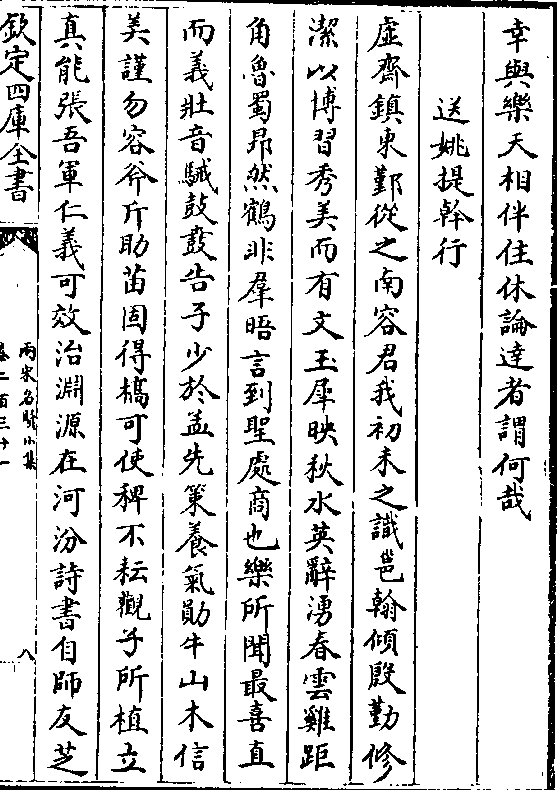 幸與樂天相伴住休論達者謂何哉
送姚提幹行
虛齋鎮東鄞從之南容君我初未之識邕翰傾殷勤修
潔以博習秀美而有文玉犀映秋水英辭湧春雲雞距
角魯蜀昂然鶴非羣晤言到聖處商也樂所聞最喜直
而義壯音馘鼓鼖告子少於孟先策養氣勛牛山木信
美謹勿容斧斤助苗固得槁可使稗不耘觀子所植立
真能張吾軍仁義可效治淵源在河汾詩書自師友芝
欽定四庫全書
兩宋名賢小集
卷二百三十一
八